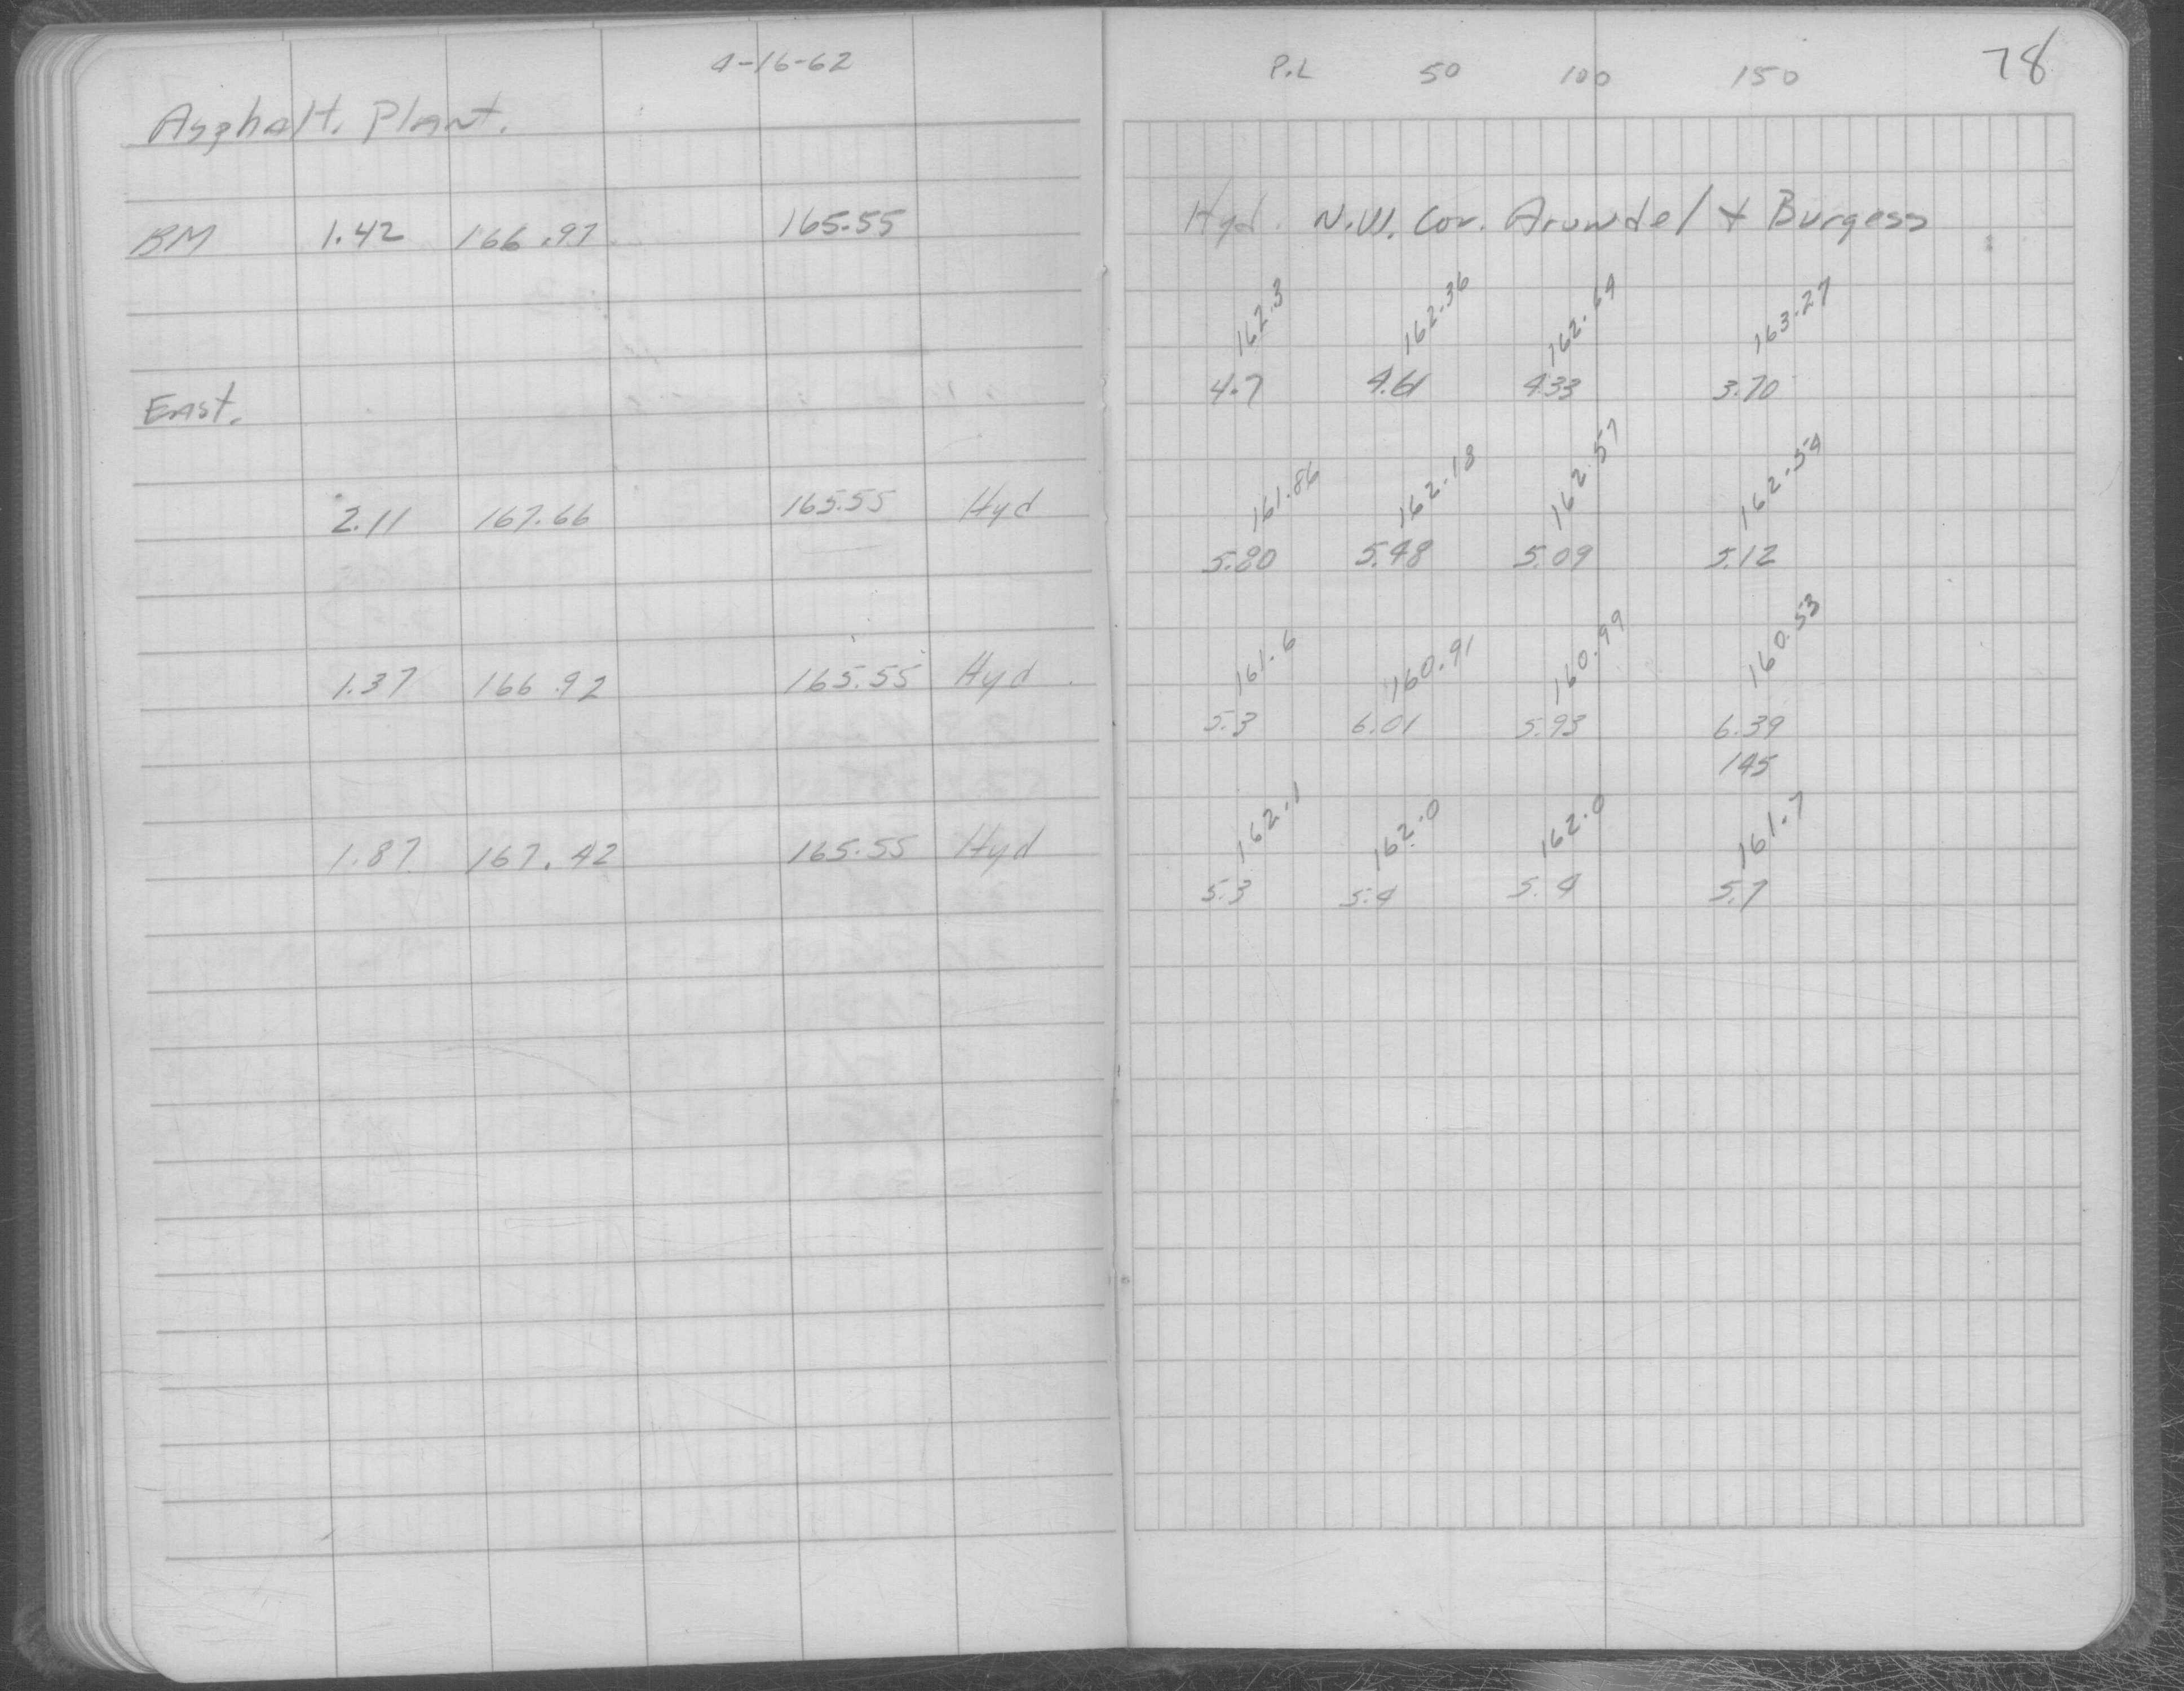 4-16-62
Asphalt. Plant.
BM 1.42 166.97 165.55
East.
2.11 167.66 165.55 Hyd
1.37 166.92 165.55 Hyd.
1.87 167.42 165.55 Hyd
78
P.L 50 100 150
Hyd. N.W. Cor. Arundel + Burgess
162.3 162.36 162.64 163.27
4.7 4.61 4.33 3.70
161.86 162.18 162.57 162.54
5.80 5.48 5.09 5.12
161.6 160.91 160.99 160.53
5.3 6.01 5.93 6.39
145
162.1 162.0 162.0 161.7
5.3 5.4 5.4 5.7